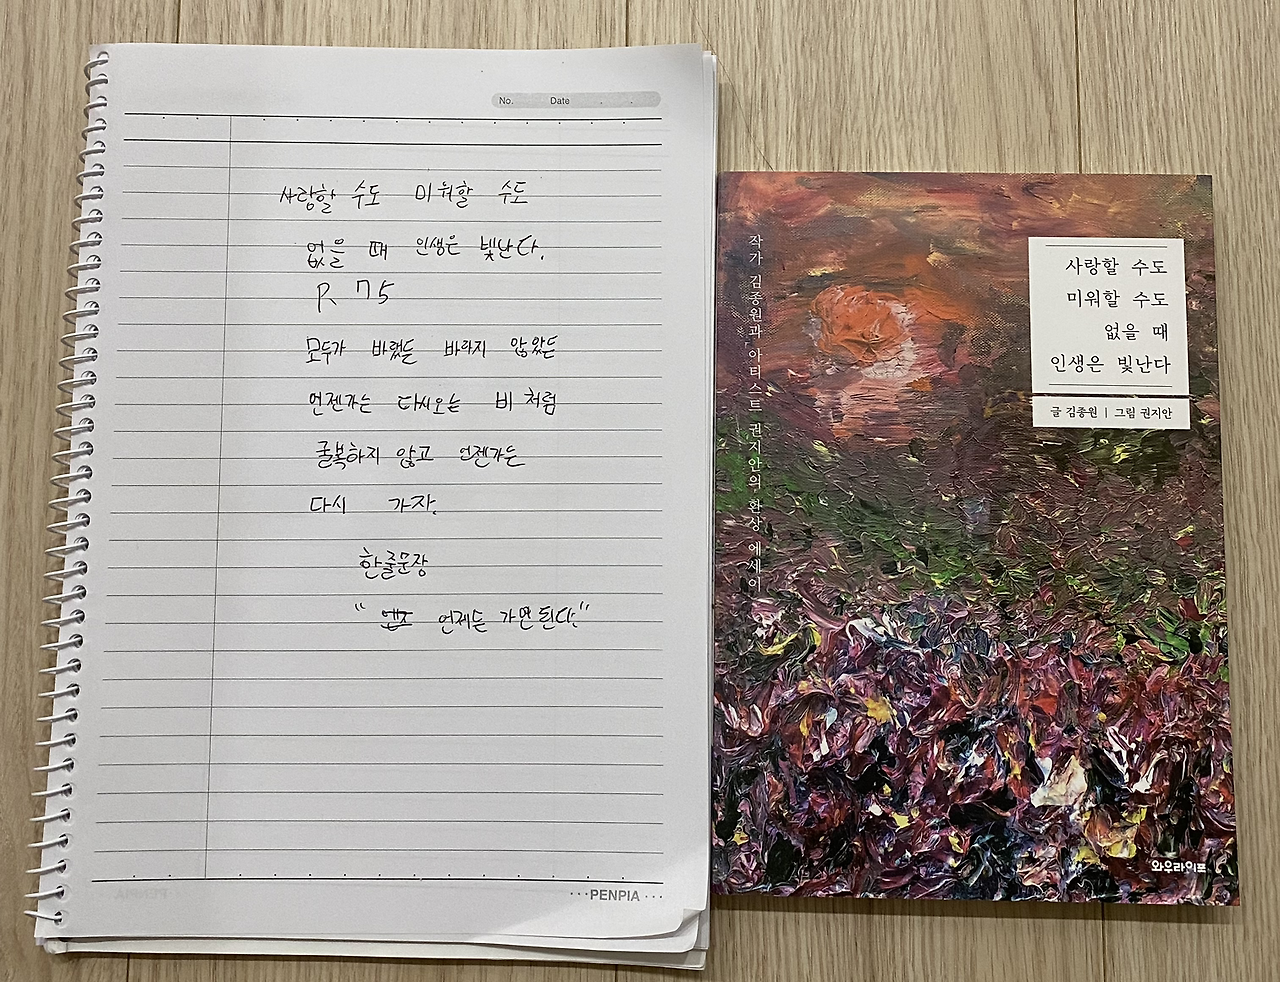 No. Date
사랑할 수도 미워할 수도
없을 때 인생은 빛난다.
P 75
모두가 바랬든 바라지 않았든
언젠가는 다시오는 비 처럼
굴복하지 않고 언젠가는
다시 가자.
한줄문장
" 언제든 가면 된다."
PENPIA
작가 김종원과 아티스트 권지안의 환상 에세이
사랑할 수도
미워할 수도
없을 때
인생은 빛난다
글 김종원 | 그림 권지안
와우라이프